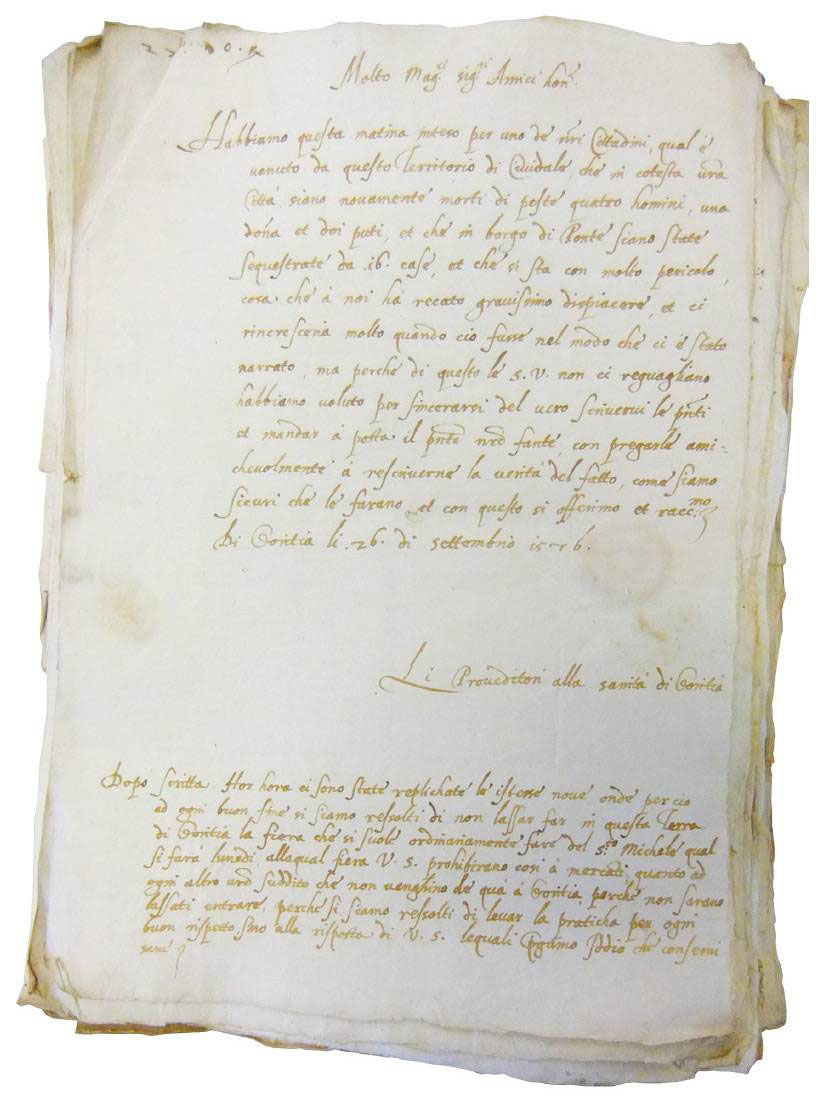 Molto Mag.ci sig.ri Amici hon.di
Habbiamo questa matina inteso per uno de nri Cittadini, qual è
venuto da questo Territorio di Cividale, che in cotesta vra
Città siano novamente morti di peste quatro homini, una
dona et doi puti, et che in borgo di Ponte siano state
sequestrate da .16. case, et che si sta con molto pericolo,
cosa che à noi hà recato gravissimo dispiacere, et ci
rincresceria molto quando cio fusse nel modo che ci è stato
narrato, ma perche di questo le S. V. non ci reguagliano
habbiamo voluto per sincerarsi del vero scrivervi le pnti
et mandar à posta il pnte nro fante, con pregarle ami-
chevolmente à rescriverne la verità del fatto, come siamo
sicuri che le farano, et con questo si offerimo et racc.mo
Di Goritia li .26. di settembrio 1576.
Li Proveditori alla sanità di Goritia
Dopo scritta. Hor hora ci sono state replichate le istesse nove onde per cio
ad ogni buon fine si siamo ressolti di non lassar far in questa Terra
di Goritia la fiera che si suole ordinariamente fare del S.to Michele qual
si farà lunedi, allaqual fiera V. S. prohibirano cosi à mercati, quanto ad
ogni altro vro suddito che non venghino de quà à Goritia, perche non sarano
lassati entrare, perche si siamo ressolti di levar la praticha per ogni
buon rispetto sino alla risposta di V. S. lequali pgamo Iddio che conservi
sane